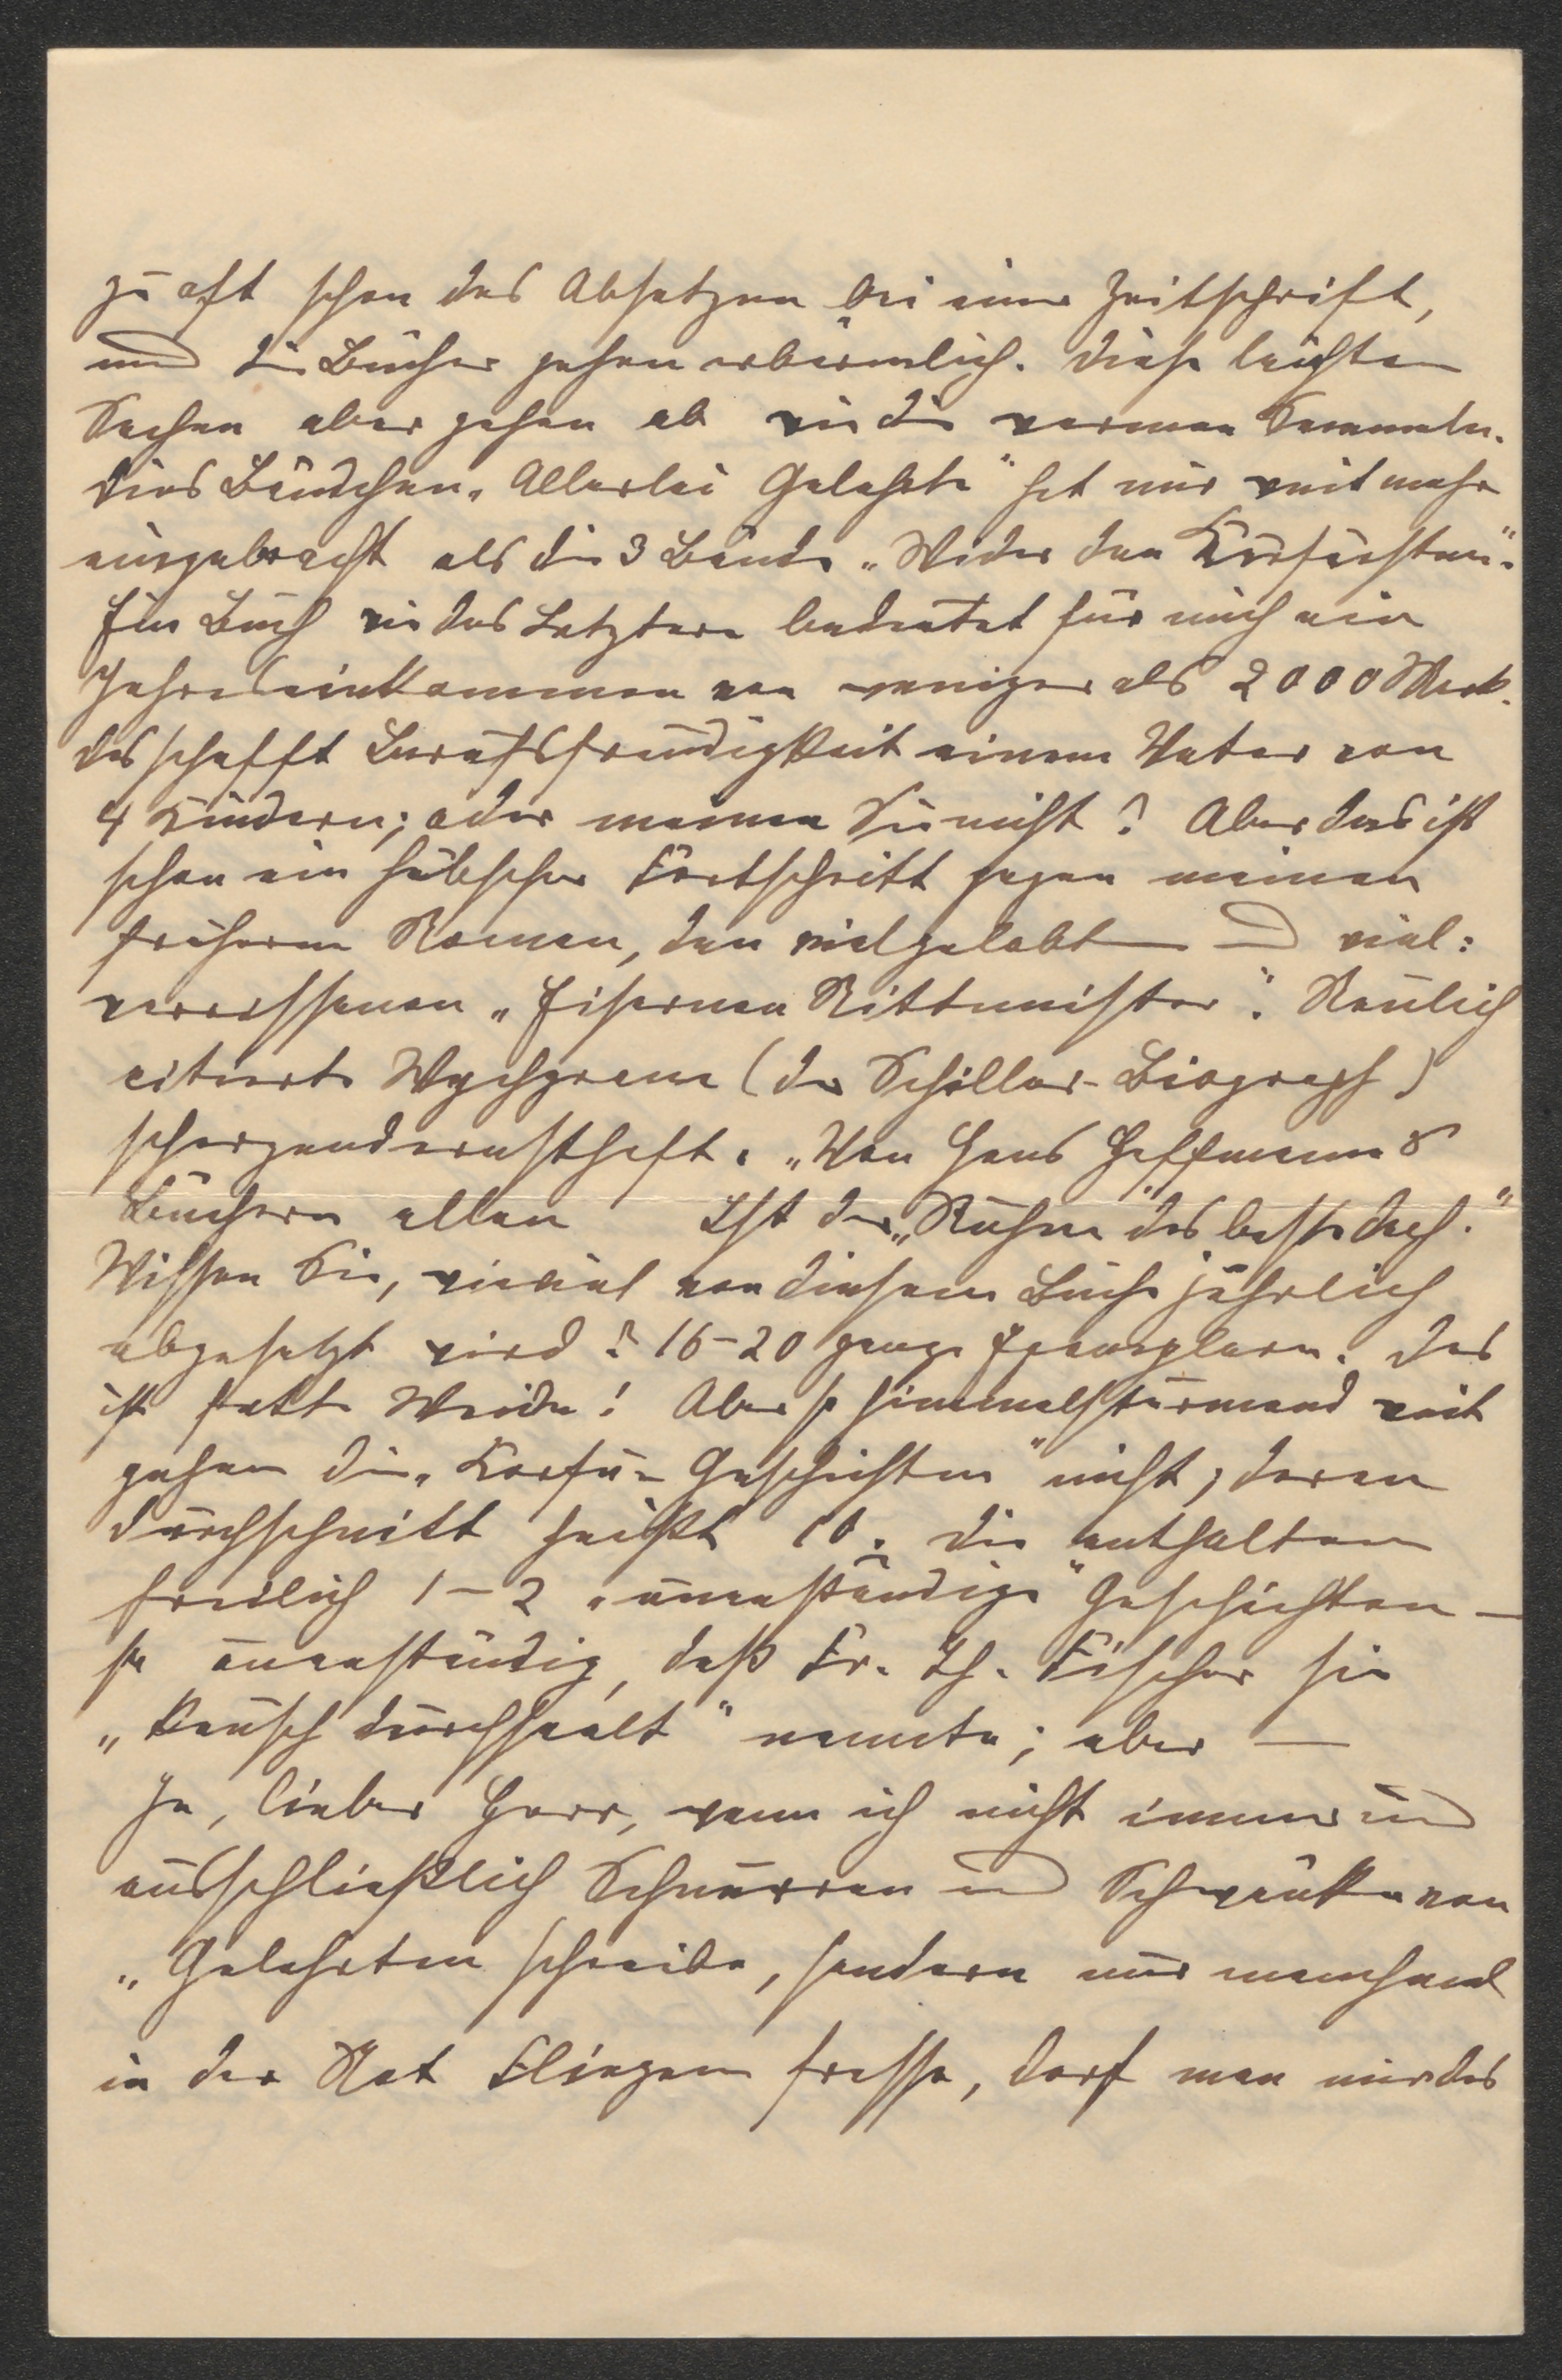 zu oft schon das Absetzen bei einer Zeitschrift,
und die Bücher gehen erbärmlich. Diese leichten
Sachen aber gehen ab wie die warmen Semmeln.
Dies Bändchen „Allerlei Gelehrte" hat mir weit mehr
eingebracht als die 3 Bände „Wider den Kurfürsten".
Ein Buch wie das Letztere bedeutet für mich ein
Jahreseinkommen von weniger als 2000 Mark.
Das schafft Berufsfreudigkeit einem Vater von
4 Kindern; oder meinen Sie nicht? Aber das ist
schon ein hübscher Fortschritt gegen meinen
früheren Roman, den vielgelobten und viel-
verrissenen „Eisernen Rittmeister". Neulich
citierte Wychgram (der Schiller-Biograph)
scherzendernsthaft: „Von Hans Hoffmanns
Büchern allen Ist der „Ruhm" das beste doch."
Wissen Sie, wieviel von diesem Buche jährlich
abgesetzt wird? 16–20 ganze Exemplare. Das
ist fette Weide! Aber so himmelstürmend weit
gehen die „Korfu-Geschichten" nicht; deren
Durchschnitt heißt 10. Die enthalten
freilich 1–2 „unanständige" Geschichten —
so unanständig, daß Fr. Th. Vischer sie
„keusch durchseelt" nannte; aber —
Ja, lieber Herr, wenn ich nicht immer und
ausschließlich Schnurren und Schwänke von
„Gelehrten schreibe, sondern nur manchmal
in der Not Fliegen fresse, darf man mir das